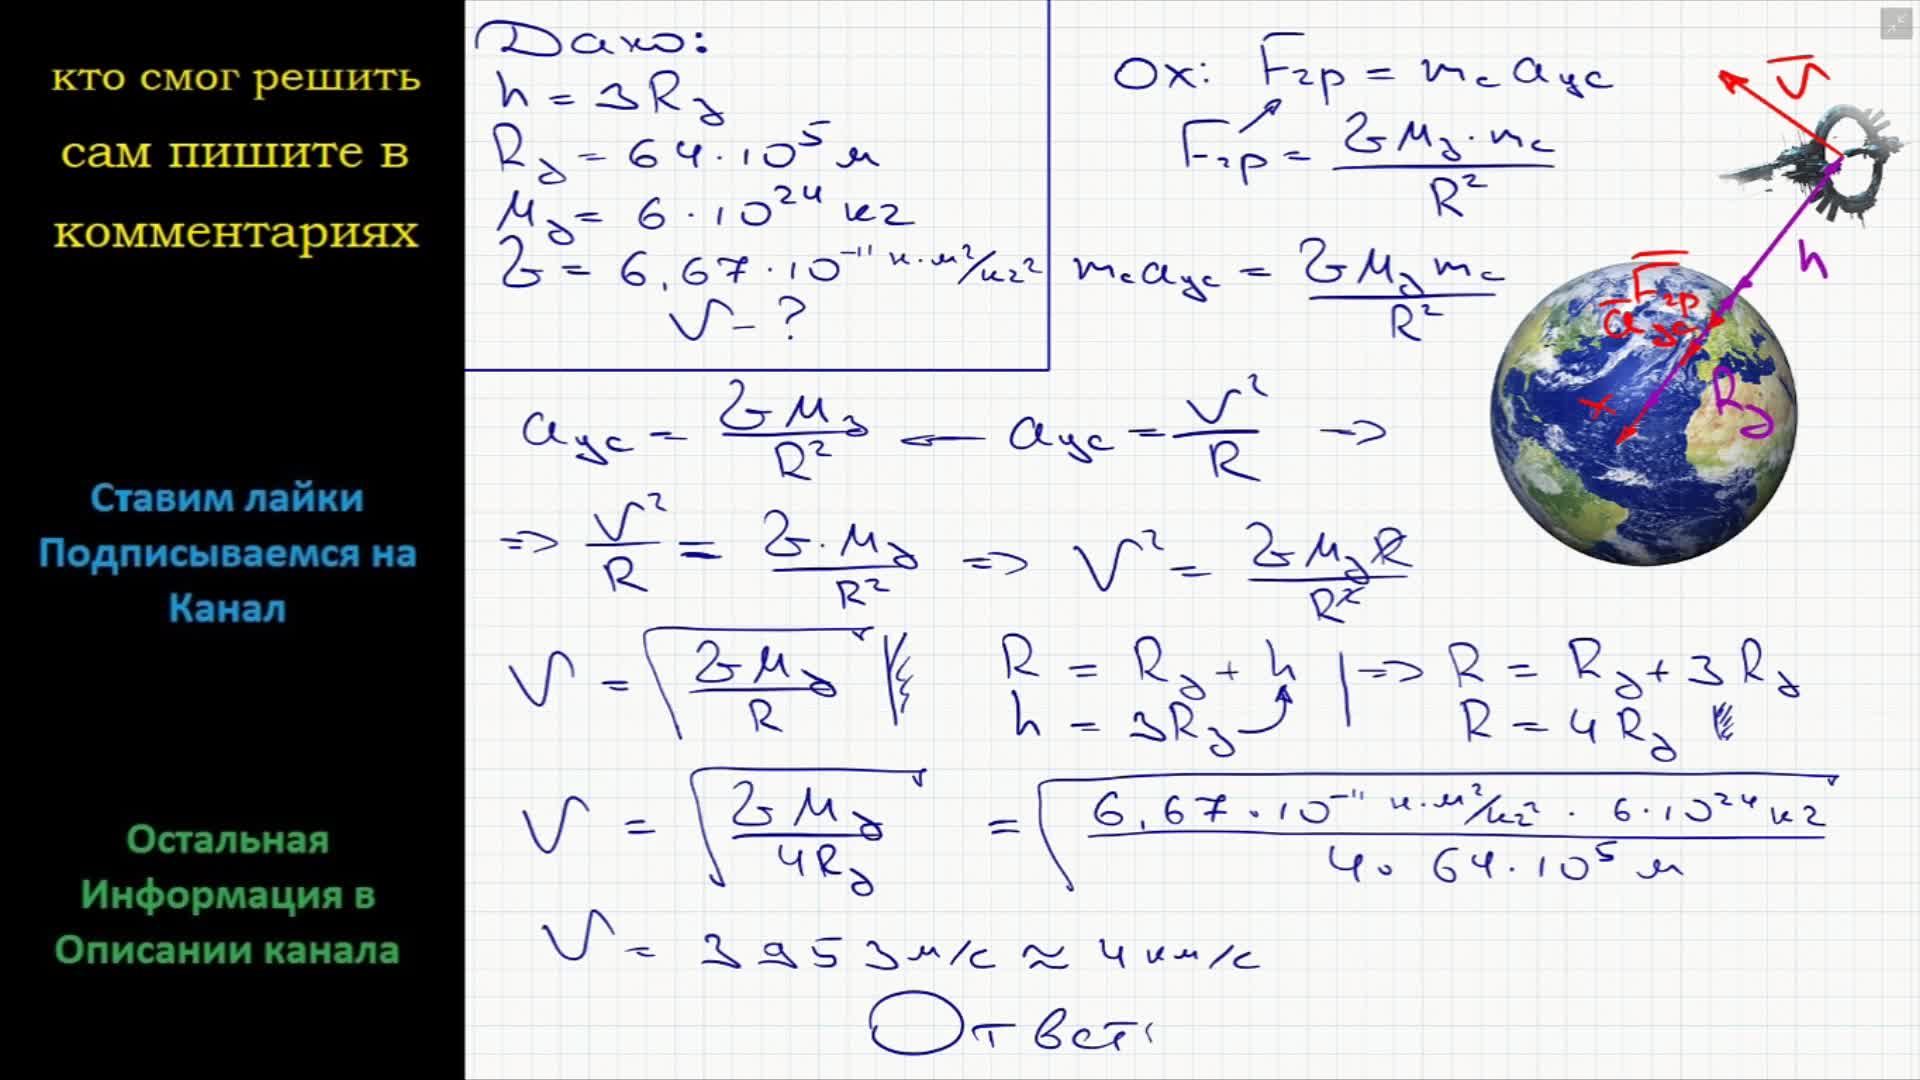 кто смог решить
сам пишите в
комментариях
Ставим лайки
Подписываемся на
Канал
Остальная
Информация в
Описании канала
Дано:
h = 3Rз
Rз = 64·10⁵ м
Mз = 6·10²⁴ кг
G = 6,67·10⁻¹¹ н·м²/кг²
V - ?
Ox: Fгр = mc aус
Fгр = G Mз·mc / R²
mc aус = G Mз mc / R²
aус = G Mз / R² ← aус = V² / R ⇒
⇒ V² / R = G·Mз / R² ⇒ V² = G Mз R / R²
V = √(G Mз / R)
R = Rз + h ⇒ R = Rз + 3Rз
h = 3Rз R = 4Rз
V = √(G Mз / 4Rз) = √(6,67·10⁻¹¹ н·м²/кг² · 6·10²⁴ кг / 4·64·10⁵ м)
V = 3953 м/с ≈ 4 км/с
Ответ
V
h
Fгр
aус
Rз
x